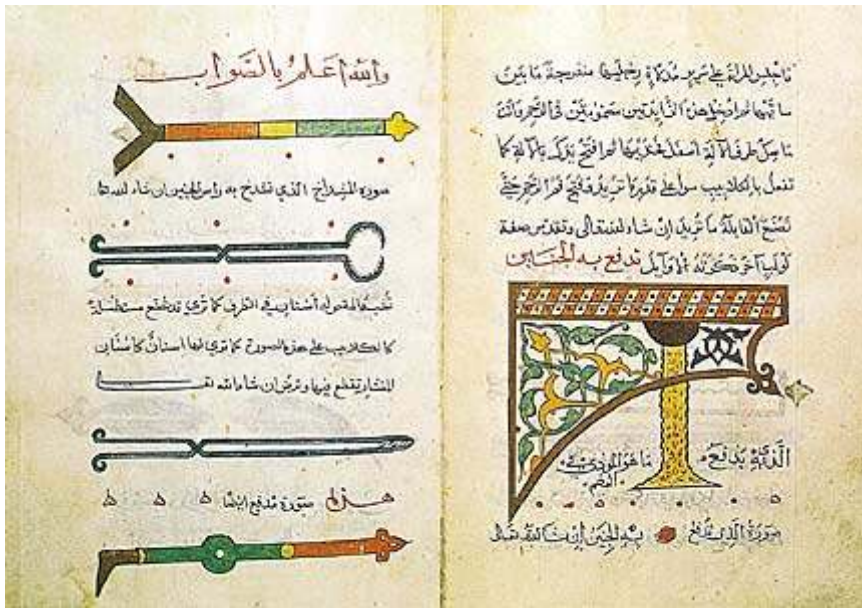 فاجلس المراة على سرير مدلاة رجليها منفرجة ما بين
ساقيها ثم ادخل هذين الزايدتين في الرحم وانت
ماسك طرف الآلة اسفل فخذيها ثم افتح يدك بالآلة كما
تفعل بالكلاليب سوا على قدر ما تريد فتح فم الرحم حتى
تصنع القابلة ما تريد ان شاء الله تعالى
لولب آخر ذكرته الاوايل تدفع به الجنين
الذي يدفع ما هو
صورة الذي تدفع به الجنين ان شا الله تعالى
والله اعلم بالصواب
صورة المشداخ الذي تشدخ به راس الجنين ان شاء الله تعا
له اسنان في الطرف كما ترى قد تصنع مستطيلة
كالكلاليب على هذه الصورة كما ترى لها اسنان كاسنان
المنشار يقطع بها وترض ان شاء الله تعـ
هذه صورة مدفع ايضا ه ه ه